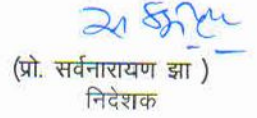 (प्रो. सर्वनारायण झा )
निदेशक